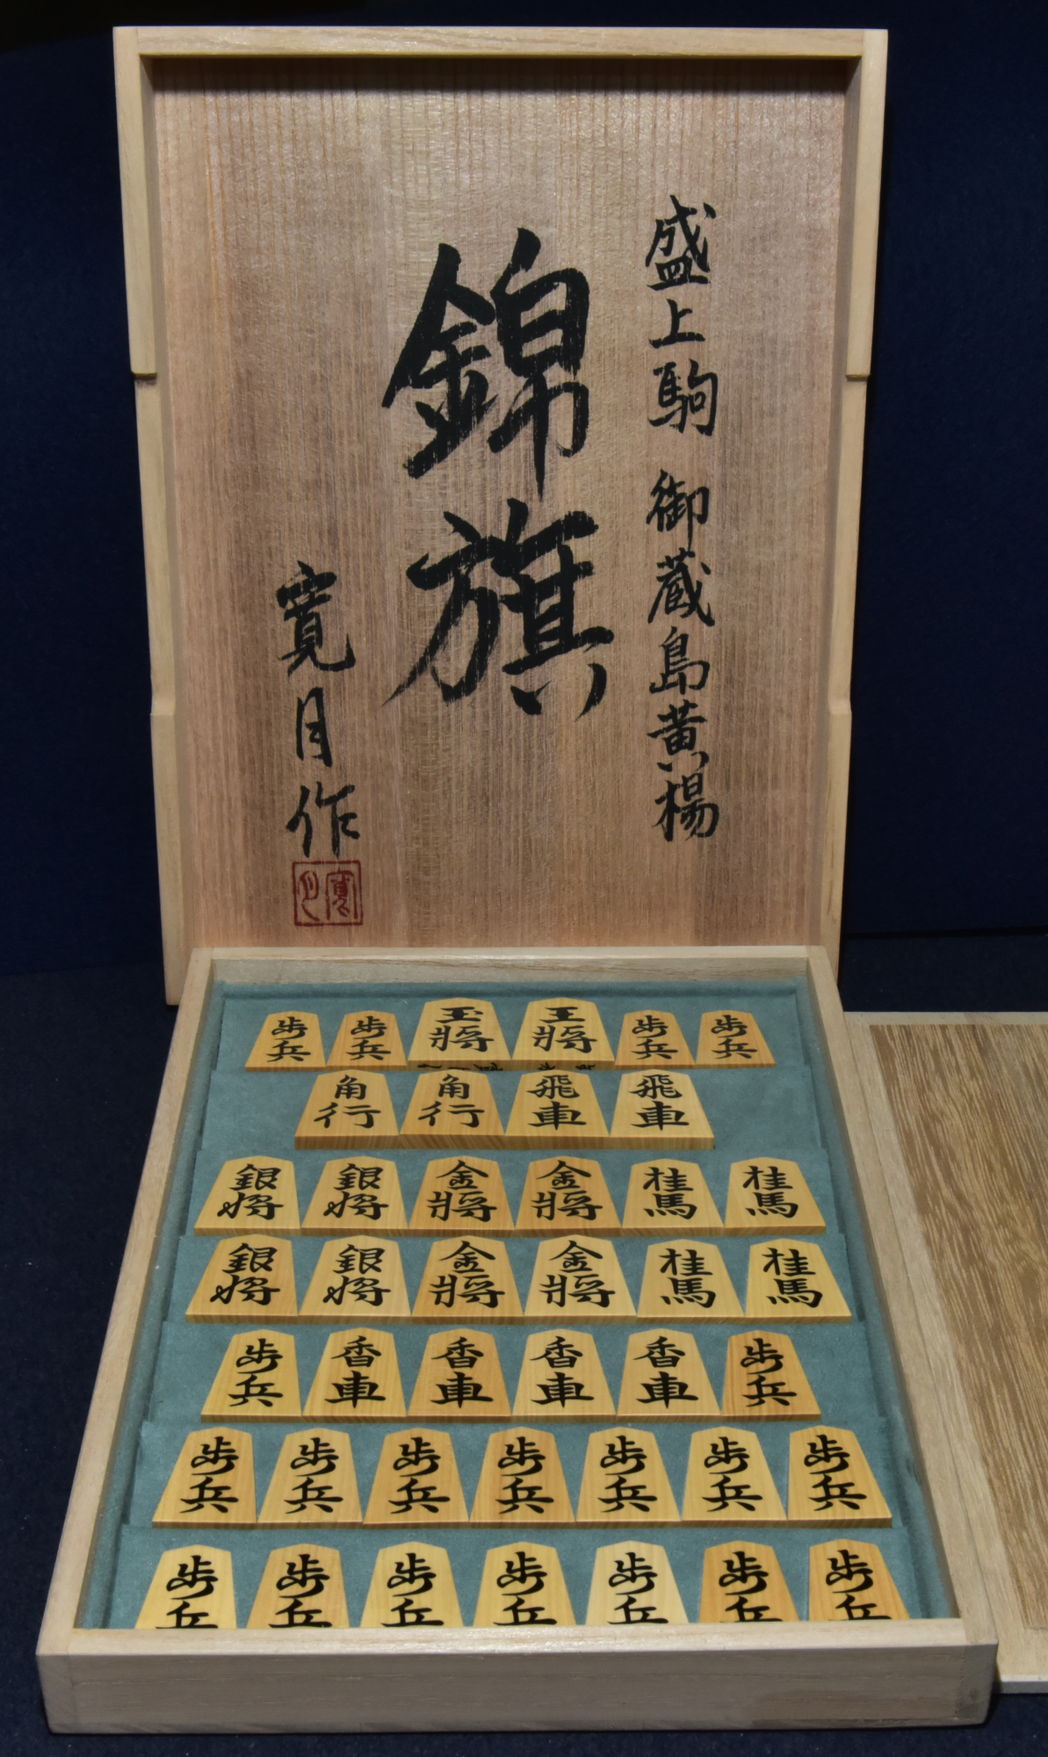 盛上駒 御蔵島黄楊
錦旗
寛月作
歩兵 歩兵 玉將 王將 歩兵 歩兵
角行 角行 飛車 飛車
銀将 銀将 金將 金將 桂馬 桂馬
銀将 銀将 金將 金將 桂馬 桂馬
歩兵 香車 香車 香車 香車 歩兵
歩兵 歩兵 歩兵 歩兵 歩兵 歩兵 歩兵
歩兵 歩兵 歩兵 歩兵 歩兵 歩兵 歩兵